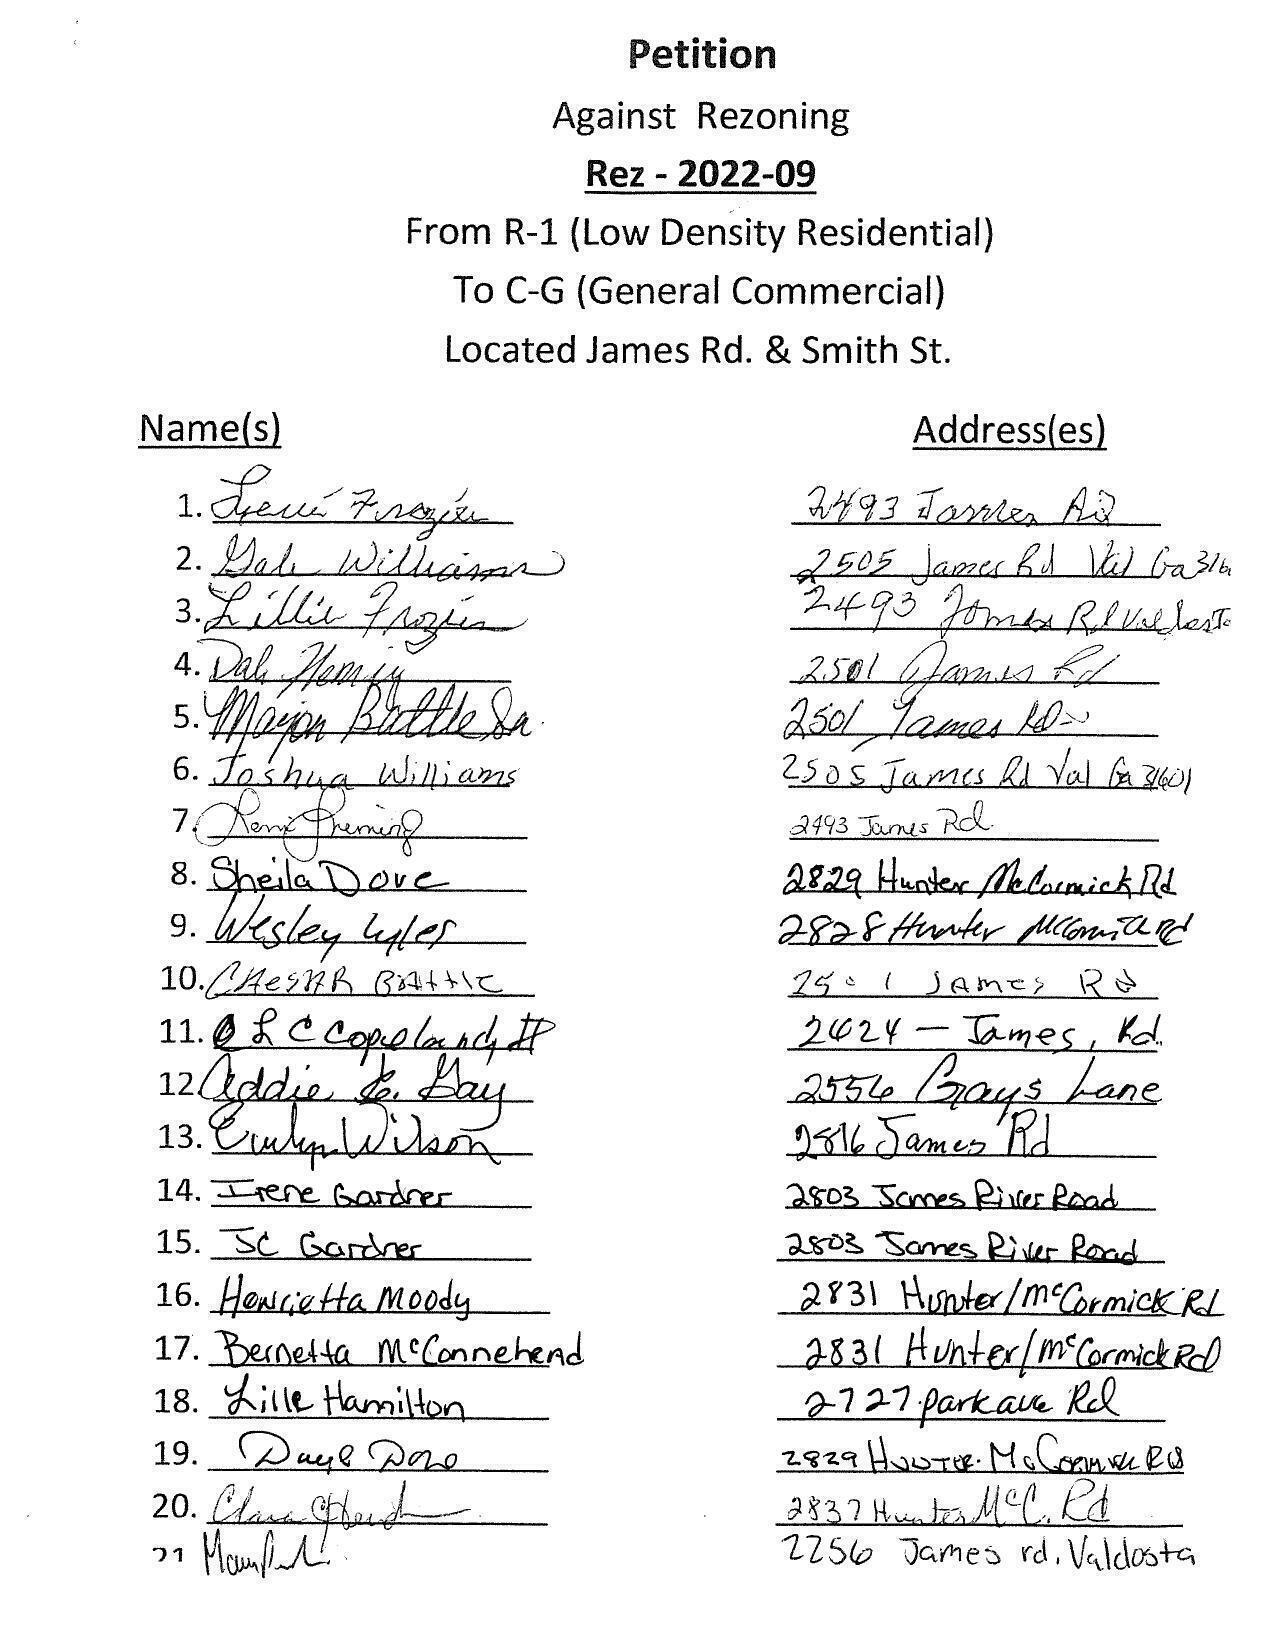 Petition
Against Rezoning
Rez - 2022-09
From R-1 (Low Density Residential)
To C-G (General Commercial)
Located James Rd. & Smith St.
Name(s) Address(es)
1. Frozier 2493 James Rd
2. Gale Williams 2505 James Rd Val Ga 316
3. Lillie Frozier 2493 James Rd Valdosta
4. Dale 2501 James Rd
5. Major Battle Sr. 2501 James Rd
6. Joshua Williams 2505 James Rd Val Ga 31601
7. 2493 James Rd.
8. Sheila Dove 2829 Hunter McCormick Rd
9. Wesley Lyles 2828 Hunter McCormick Rd
10. Battle 2501 James Rd
11. L C Copeland James, Rd.
12. Addie Gay 2556 Grays Lane
13. Evelyn Wilson 2816 James Rd
14. Irene Gardner 2803 James River Road
15. JC Gardner 2803 James River Road
16. Henrietta Moody 2831 Hunter/McCormick Rd
17. Bernetta McConnehead 2831 Hunter/McCormick Rd
18. Lille Hamilton 2727 parkave Rd
19. 2829 Hunter McCormick Rd
20. Clara 2837 Hunter McC. Rd
21 2256 James rd. Valdosta